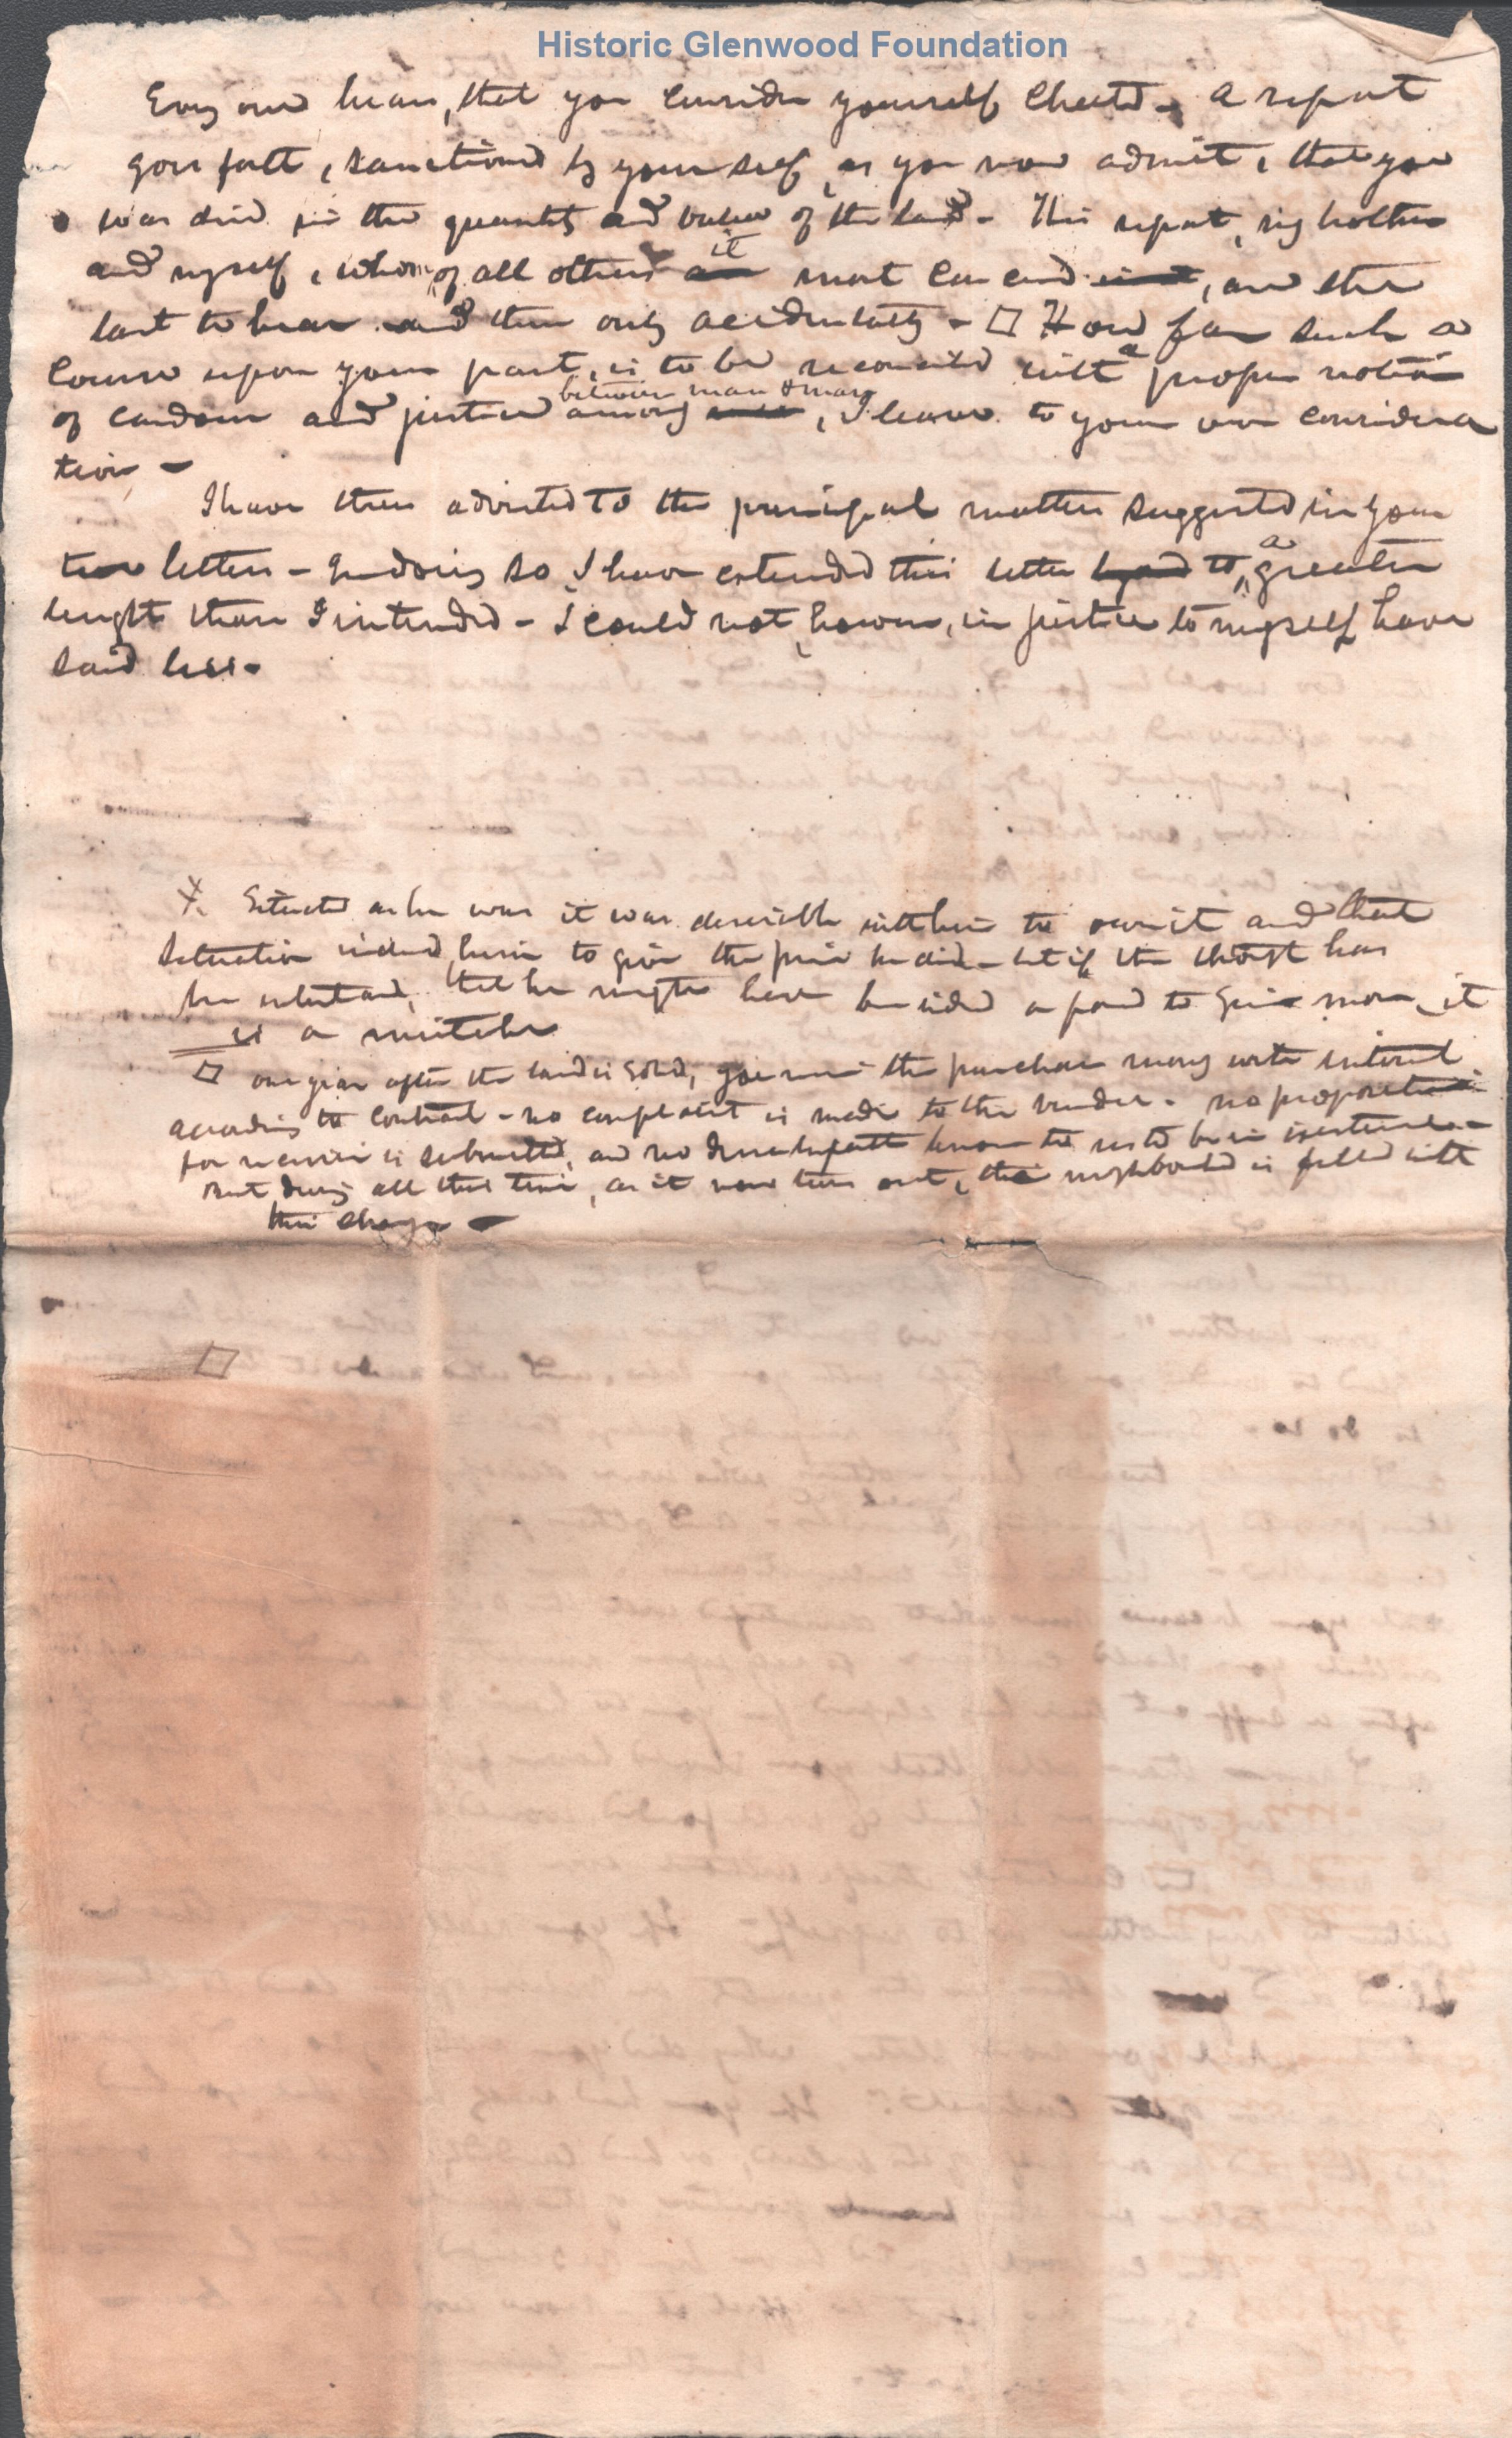 Historic Glenwood Foundation
Every one hears, that you consider yourself cheated - a report
goes forth, sanctioned by yourself, as you now admit, that you
was decd in the quantity and value of the land - This report, my brother
and myself, whom, of all others it most concernd, are the
last to hear and then only accidentally - □ How far such a
course upon your part, is to be reconciled with a proper notion
of candour and justice between man & man among, I leave to your own considera
tion -
I have thus adverted to the principal matters suggested in your
two letters - In doing so I have extended this letter to a greater
lenght than I intended - I could not, however, in justice to myself have
said less -
X Situated as he was it was desirable with him to own it and that
situation induced him to give the price he did - but if the thought has
been entertaind, that he might have been induced or forced to give more, it
is a mistake
□ one year after the land is sold, you receive the purchase money with interest
according to contract - no complaint is made to the vendor - no proposition
for rescision is submitted, and no dissatisfaction known to us to be in existence -
But during all this time, as it now turns out, the neighborhood is filled with
this charge -
□